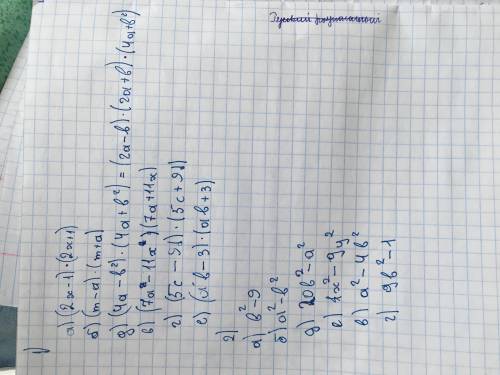 1)
а) (2x-1)·(2x+1)
б) (m-a)·(m+a)
д) (4a-b²)·(4a+b²) = (2a-b)·(2a+b)·(4a+b²)
в) (7a²-11x²)(7a+11x)
г) (5c-9b)·(5c+9b)
е) (ab-3)·(ab+3)
2)
а) b²-9
б) a²-b²
д) 20b²-a²
е) 4x²-9y²
в) a²-4b²
г) 9b²-1